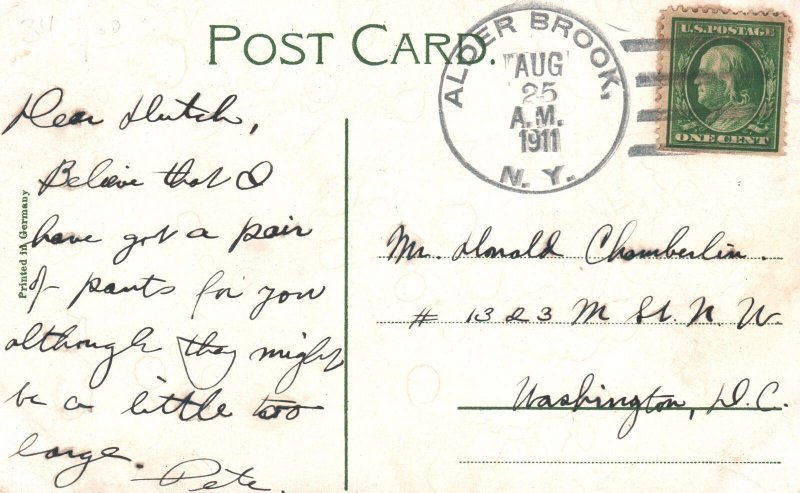 POST CARD.
ALDER BROOK,
AUG
25
A.M.
1911
N. Y.
U.S. POSTAGE
ONE CENT
Printed in Germany
Dear Dutch,
Believe that I
have got a pair
of pants for you
although they might
be a little too
large.
Pete.
Mr. Donald Chamberlin.
# 1323 M St. N. W.
Washington, D. C.